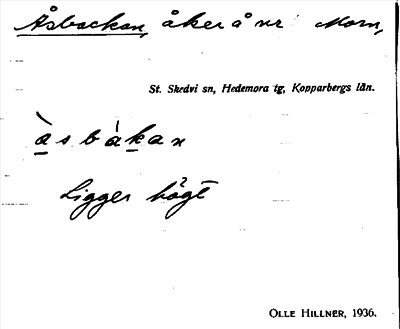 Åsbackan, åker å nr Morn,
St. Skedvi sn, Hedemora tg, Kopparbergs län.
àsbàkan
Ligger högt
OLLE HILLNER, 1936.